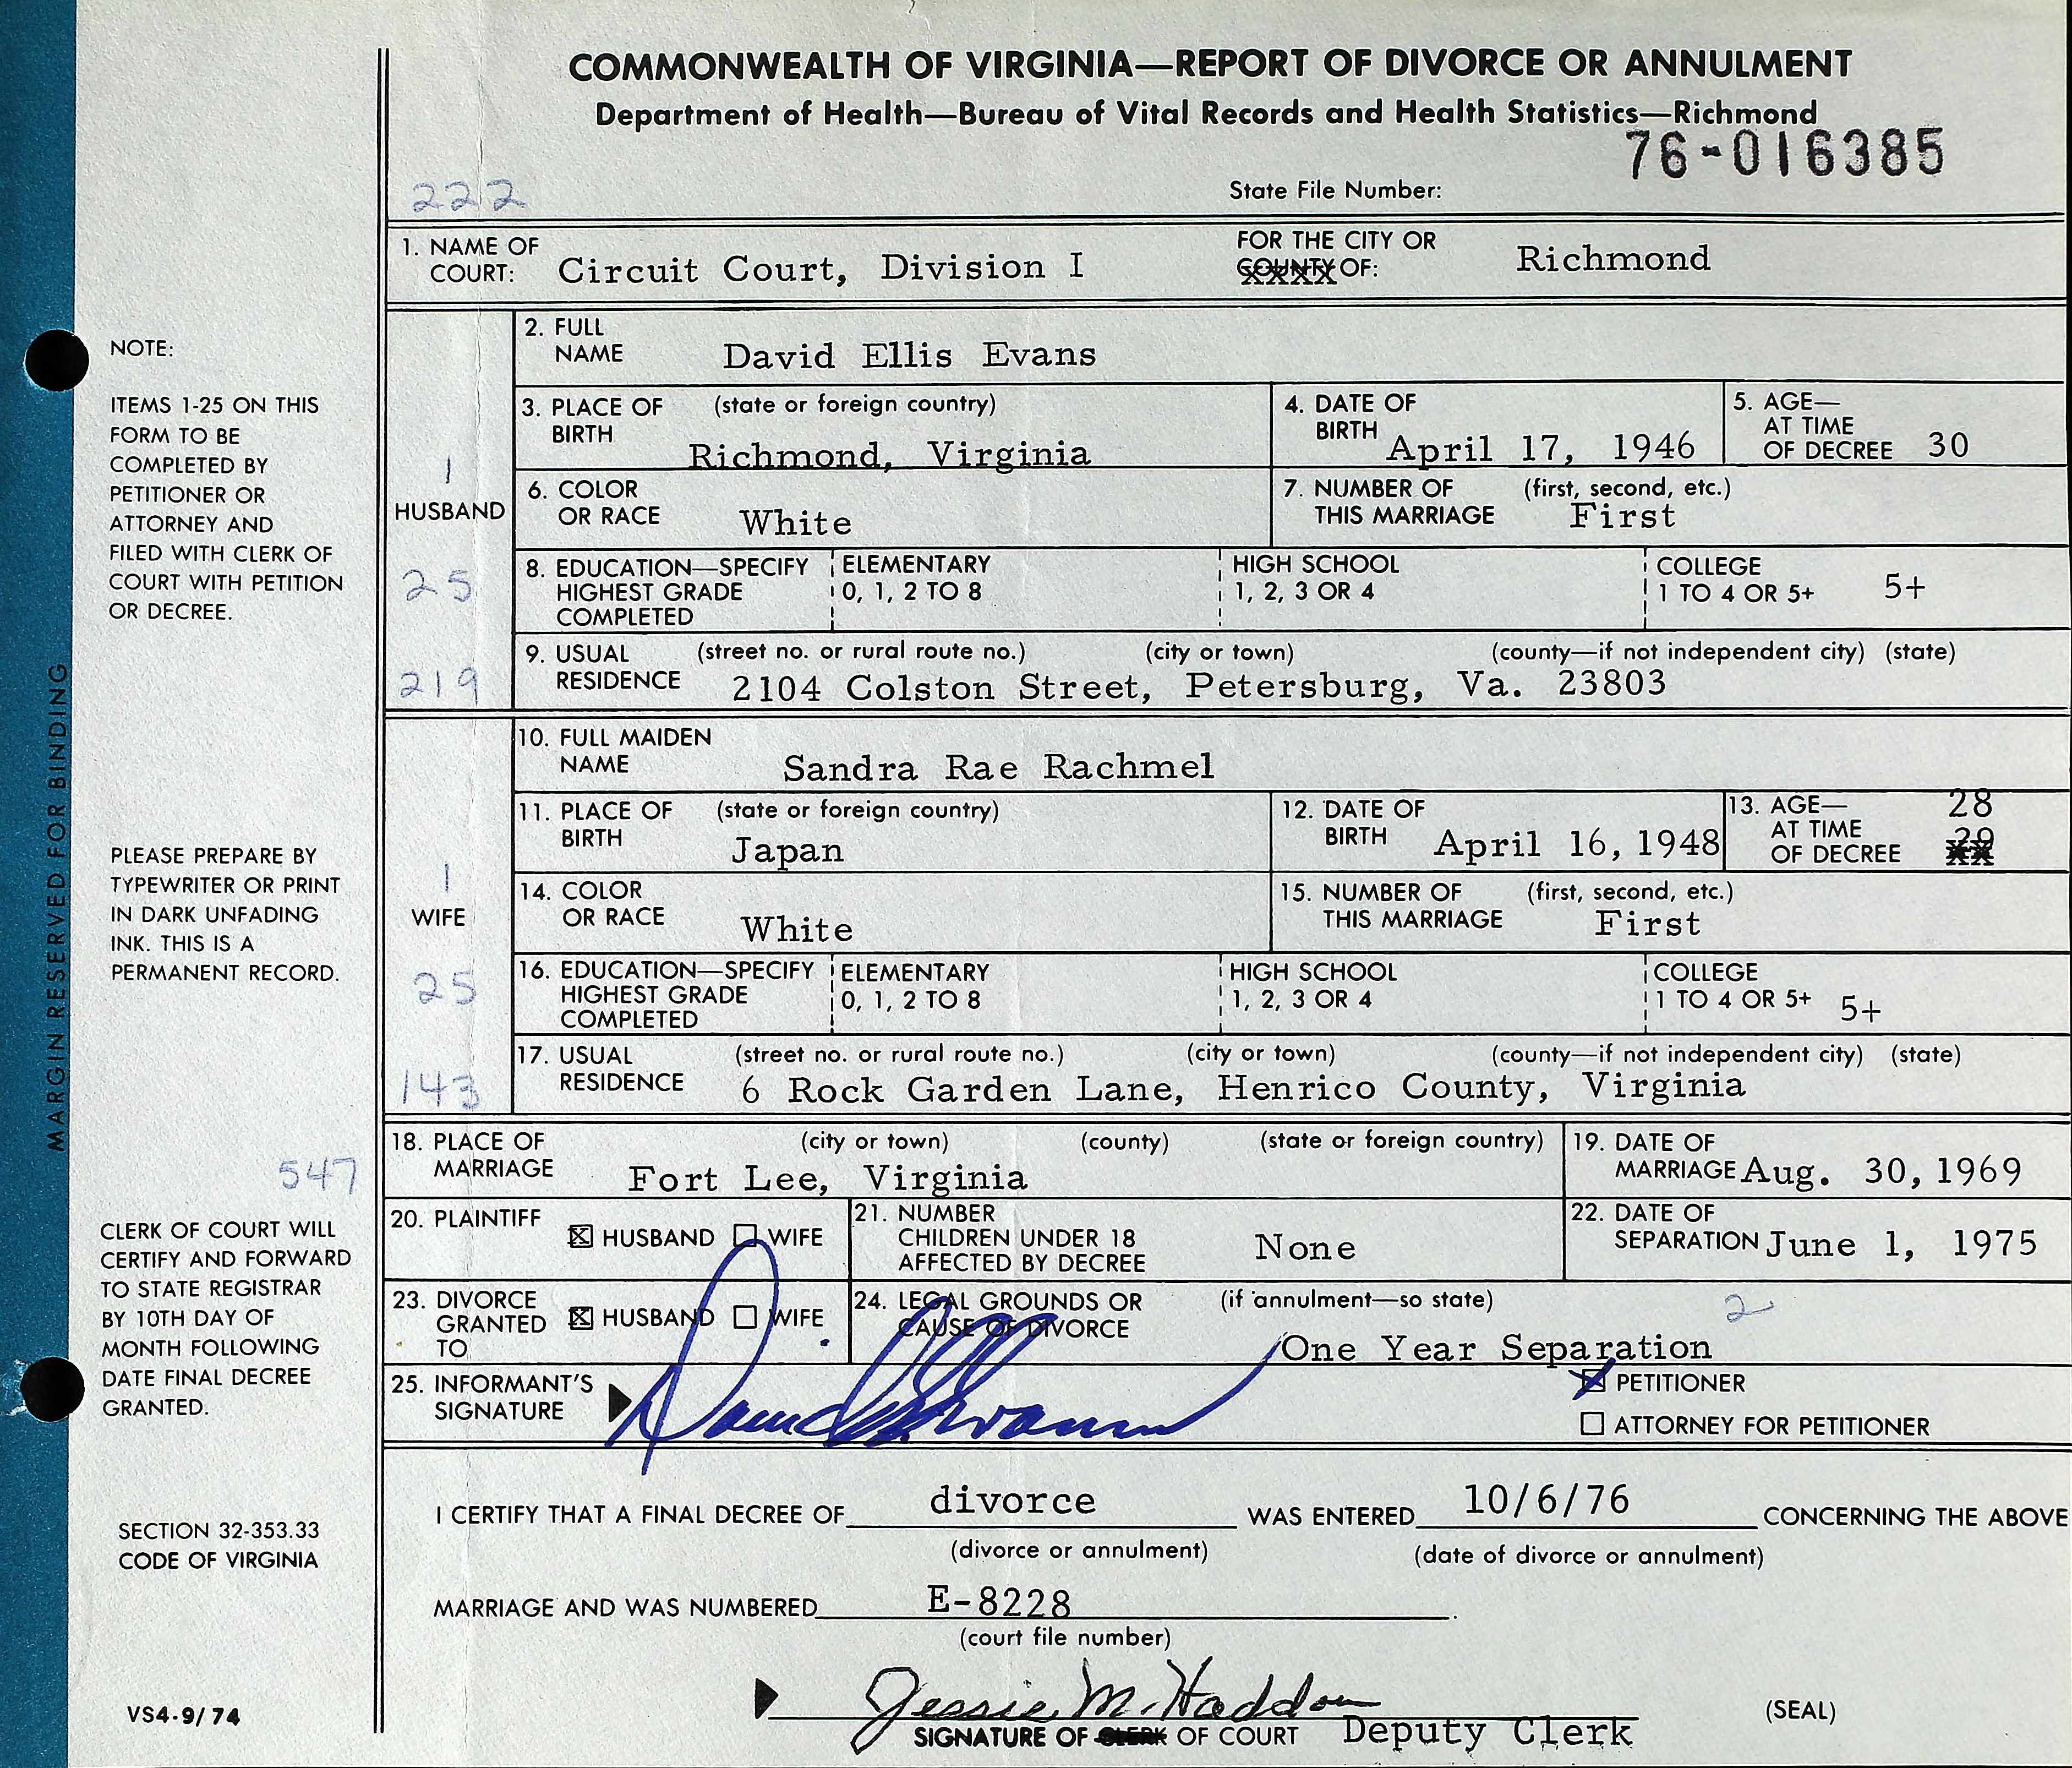 COMMONWEALTH OF VIRGINIA—REPORT OF DIVORCE OR ANNULMENT
Department of Health—Bureau of Vital Records and Health Statistics—Richmond
76-016385
222
State File Number:
1. NAME OF COURT: Circuit Court, Division I FOR THE CITY OR COUNTY OF: Richmond
2. FULL NAME David Ellis Evans
3. PLACE OF BIRTH (state or foreign country) Richmond, Virginia
4. DATE OF BIRTH April 17, 1946
5. AGE—AT TIME OF DECREE 30
1
HUSBAND
6. COLOR OR RACE White
7. NUMBER OF THIS MARRIAGE (first, second, etc.) First
25
8. EDUCATION—SPECIFY HIGHEST GRADE COMPLETED
ELEMENTARY 0, 1, 2 TO 8
HIGH SCHOOL 1, 2, 3 OR 4
COLLEGE 1 TO 4 OR 5+ 5+
219
9. USUAL RESIDENCE (street no. or rural route no.) (city or town) (county—if not independent city) (state)
2104 Colston Street, Petersburg, Va. 23803
10. FULL MAIDEN NAME Sandra Rae Rachmel
11. PLACE OF BIRTH (state or foreign country) Japan
12. DATE OF BIRTH April 16, 1948
13. AGE—AT TIME OF DECREE 28
29
1
WIFE
14. COLOR OR RACE White
15. NUMBER OF THIS MARRIAGE (first, second, etc.) First
25
16. EDUCATION—SPECIFY HIGHEST GRADE COMPLETED
ELEMENTARY 0, 1, 2 TO 8
HIGH SCHOOL 1, 2, 3 OR 4
COLLEGE 1 TO 4 OR 5+ 5+
143
17. USUAL RESIDENCE (street no. or rural route no.) (city or town) (county—if not independent city) (state)
6 Rock Garden Lane, Henrico County, Virginia
547
18. PLACE OF MARRIAGE (city or town) (county) (state or foreign country)
Fort Lee, Virginia
19. DATE OF MARRIAGE Aug. 30, 1969
20. PLAINTIFF ☒ HUSBAND ☐ WIFE
21. NUMBER CHILDREN UNDER 18 AFFECTED BY DECREE None
22. DATE OF SEPARATION June 1, 1975
23. DIVORCE GRANTED TO ☒ HUSBAND ☐ WIFE
24. LEGAL GROUNDS OR CAUSE OF DIVORCE (if annulment—so state) 2
One Year Separation
25. INFORMANT'S SIGNATURE David Ellis Evans
☒ PETITIONER
☐ ATTORNEY FOR PETITIONER
I CERTIFY THAT A FINAL DECREE OF divorce WAS ENTERED 10/6/76 CONCERNING THE ABOVE
(divorce or annulment) (date of divorce or annulment)
MARRIAGE AND WAS NUMBERED E-8228.
(court file number)
Jessie M. Haddon
SIGNATURE OF CLERK OF COURT Deputy Clerk
(SEAL)
MARGIN RESERVED FOR BINDING
NOTE:
ITEMS 1-25 ON THIS
FORM TO BE
COMPLETED BY
PETITIONER OR
ATTORNEY AND
FILED WITH CLERK OF
COURT WITH PETITION
OR DECREE.
PLEASE PREPARE BY
TYPEWRITER OR PRINT
IN DARK UNFADING
INK. THIS IS A
PERMANENT RECORD.
CLERK OF COURT WILL
CERTIFY AND FORWARD
TO STATE REGISTRAR
BY 10TH DAY OF
MONTH FOLLOWING
DATE FINAL DECREE
GRANTED.
SECTION 32-353.33
CODE OF VIRGINIA
VS4-9/74